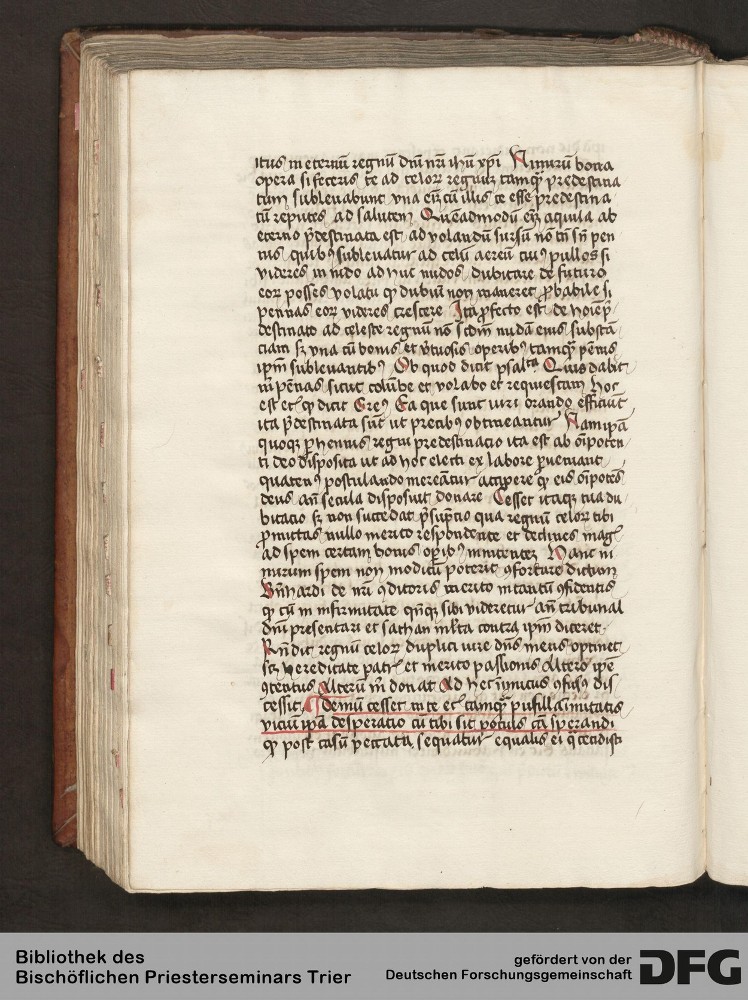 itus in eternū regnū dnī nrī ihū xpī Nimirū bona
opera si feceris te ad celoꝝ regnum tamqȝ predestina
tum sublevabunt vna eīȝ cū illis te esse predestina
tū reputes ad salutem Quēadmodū eīȝ aquila ab
eterno p̄destinata est ad volandū sursū nō tn̄ sn̄ pen
nis quibꝰ sublevatur ad celū aereū cuiꝰ pullos si
videres in nido adhuc nudos dubitare de futuro
eoꝝ posses volatu qȝ dubiū non maneret ꝓbabile si
pennas eoꝝ videres crescere Ita ꝓfecto est de hoīe p̄
destinato ad celeste regnū nō scdm nudā eius substā
ciam sȝ vna cū bonis et v̄tuosis operibꝰ tamqȝ pēnis
ip̄m sublevantibꝰ Ob quod dicit psalta Quis dabit
m̄ pēnas sicut colūbe et volabo et requiescam hoc
est et qȝ dicit Greꝰ Ea que sunt viri orando efficiūt
ita p̄destinata sūt ut precibꝰ obtineantur Nam ip̄a
quoqȝ ꝑhennis regni predestinacio ita est ab oīpoten
ti deo disposita ut ad hoc electi ex labore ꝑveniant
quatenꝰ postulando mereātur accipere qȝ eis oīpotēs
deus an̄ secula disposuit donare Cesset itaqȝ tua du
bitacio sȝ non succedat p̄sūptio qua regnū celoꝝ tibi
ꝓmittas nullo merito respondente et declines mag
ad spem certam bonis oꝑibꝰ innitentem Hanc ni
mirum spem non modicū poterit ꝯfortare dictum
Bn̄hardi de nrī ꝯditoris merito in tantū ꝯfidentis
qȝ cū in infirmitate qn̄qȝ sibi videretur an̄ tribunal
dnī presentari et sathan ml̄ta contra ip̄m diceret
Rn̄dit regnū celoꝝ duplici iure dn̄s meus optinet
scȝ hereditate patrꝭ et merito passionis altero ip̄e
ꝯtentus Alterū m̄ donat Ad hec inimicus ꝯfusꝰ dis
cessit Demū cesset in te et tamqȝ pusillanimitatis
viciū ip̄a desperatio cū tibi sit potius cā sperandi
qȝ post casū peccati sequatur equalis ei q̄ cecidisti
Bibliothek des
Bischöflichen Priesterseminars Trier
gefördert von der
Deutschen Forschungsgemeinschaft
DFG